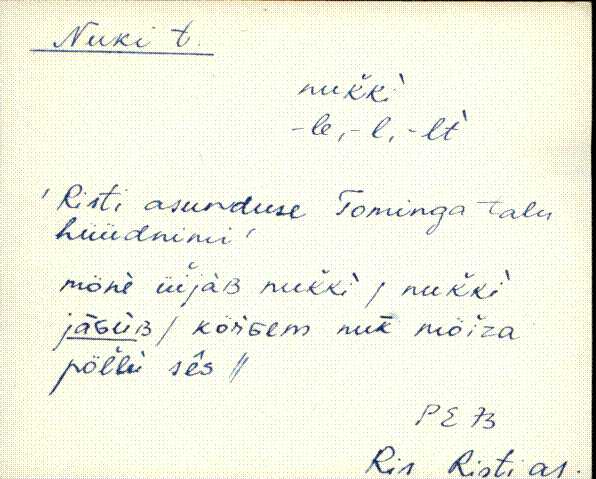 Nuki t.
nukkì
-le, -l, -lt
'Risti asunduse Tominga talu
hüüdnimi'
mònè üijàB nukkì / nukkì
jāGùB / kȫìGem nuk mȫiza
pȫllù sês //
PE 73
Ris Risti as.